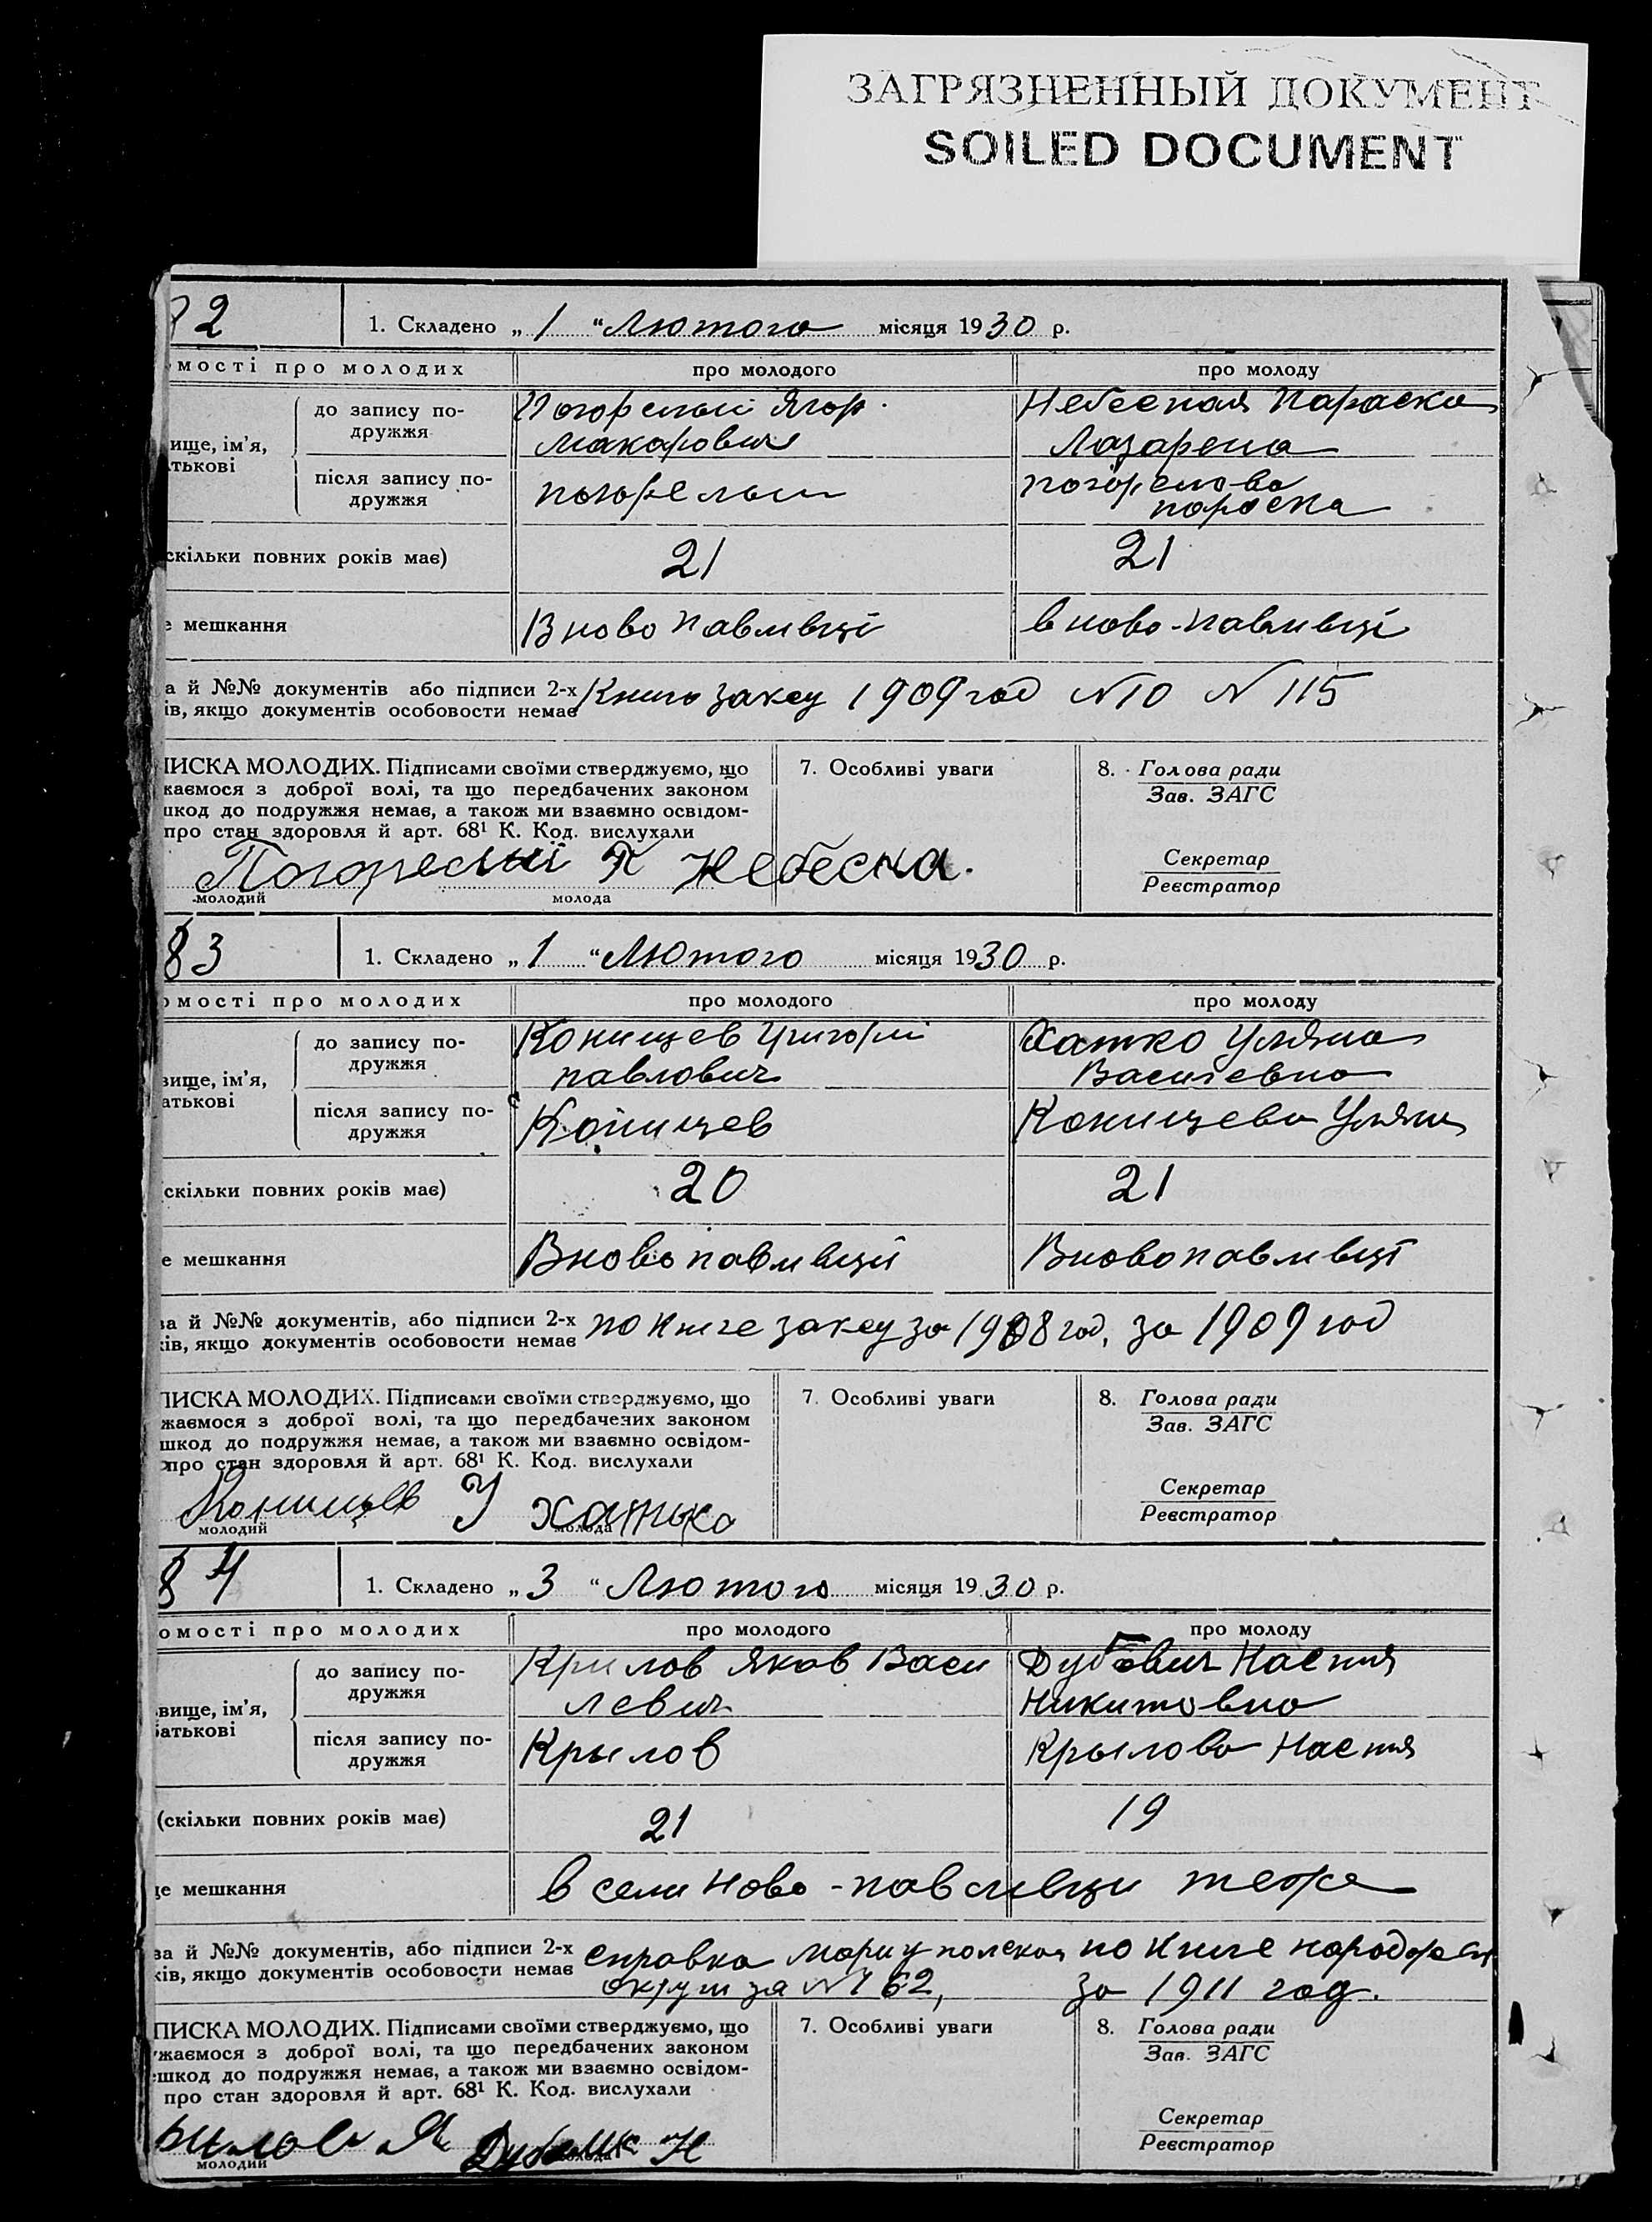 ЗАГРЯЗНЕННЫЙ ДОКУМЕНТ
SOILED DOCUMENT
82
1. Складено „ 1 “ Лютого місяця 1930 р.
омості про молодих
про молодого
про молоду
вище, ім’я,
атькові
до запису по-
дружжя
Погорелый Ягор
Макарович
Небесная Параска
Лазарена
після запису по-
дружжя
погорелый
погорелова
параска
скільки повних років має)
21
21
е мешкання
В ново павливці
в ново-павливці
ва й №№ документів або підписи 2-х
ків, якщо документів особовости немає
Книга заксу 1909 год N 10 N 115
ПИСКА МОЛОДИХ. Підписами своїми стверджуємо, що
жаємося з доброї волі, та що передбачених законом
шкод до подружжя немає, а також ми взаємно освідом-
про стан здоровля й арт. 68¹ К. Код. вислухали
Погорелый П Небесна.
молодий
молода
7. Особливі уваги
8. Голова ради
Зав. ЗАГС
Секретар
Реєстратор
83
1. Складено „ 1 “ Лютого місяця 1930 р.
омості про молодих
про молодого
про молоду
вище, ім’я,
атькові
до запису по-
дружжя
Конищев Григорій
павлович
Хатко Уляна
Василевна
після запису по-
дружжя
Конищев
Конищева Уляна
скільки повних років має)
20
21
е мешкання
В ново павливції
В ново павливці
ва й №№ документів, або підписи 2-х
ків, якщо документів особовости немає
по книге заксу за 1908 год, за 1909 год
ПИСКА МОЛОДИХ. Підписами своїми стверджуємо, що
жаємося з доброї волі, та що передбачених законом
шкод до подружжя немає, а також ми взаємно освідом-
про стан здоровля й арт. 68¹ К. Код. вислухали
Конищев У Хатько
молодий
молода
7. Особливі уваги
8. Голова ради
Зав. ЗАГС
Секретар
Реєстратор
84
1. Складено „ 3 “ Лютого місяця 1930 р.
омості про молодих
про молодого
про молоду
вище, ім’я,
батькові
до запису по-
дружжя
Крилов Яков Васи
левич
Дубович Настя
Никитовна
після запису по-
дружжя
Крылов
Крылова Настя
(скільки повних років має)
21
19
це мешкання
в сели Ново-павливци теже
ва й №№ документів, або підписи 2-х
ків, якщо документів особовости немає
справка Мариупольская по книге
округи за N 162, за 1911 год.
ПИСКА МОЛОДИХ. Підписами своїми стверджуємо, що
ужаємося з доброї волі, та що передбачених законом
шкод до подружжя немає, а також ми взаємно освідом-
про стан здоровля й арт. 68¹ К. Код. вислухали
молодий
молода
7. Особливі уваги
8. Голова ради
Зав. ЗАГС
Секретар
Реєстратор